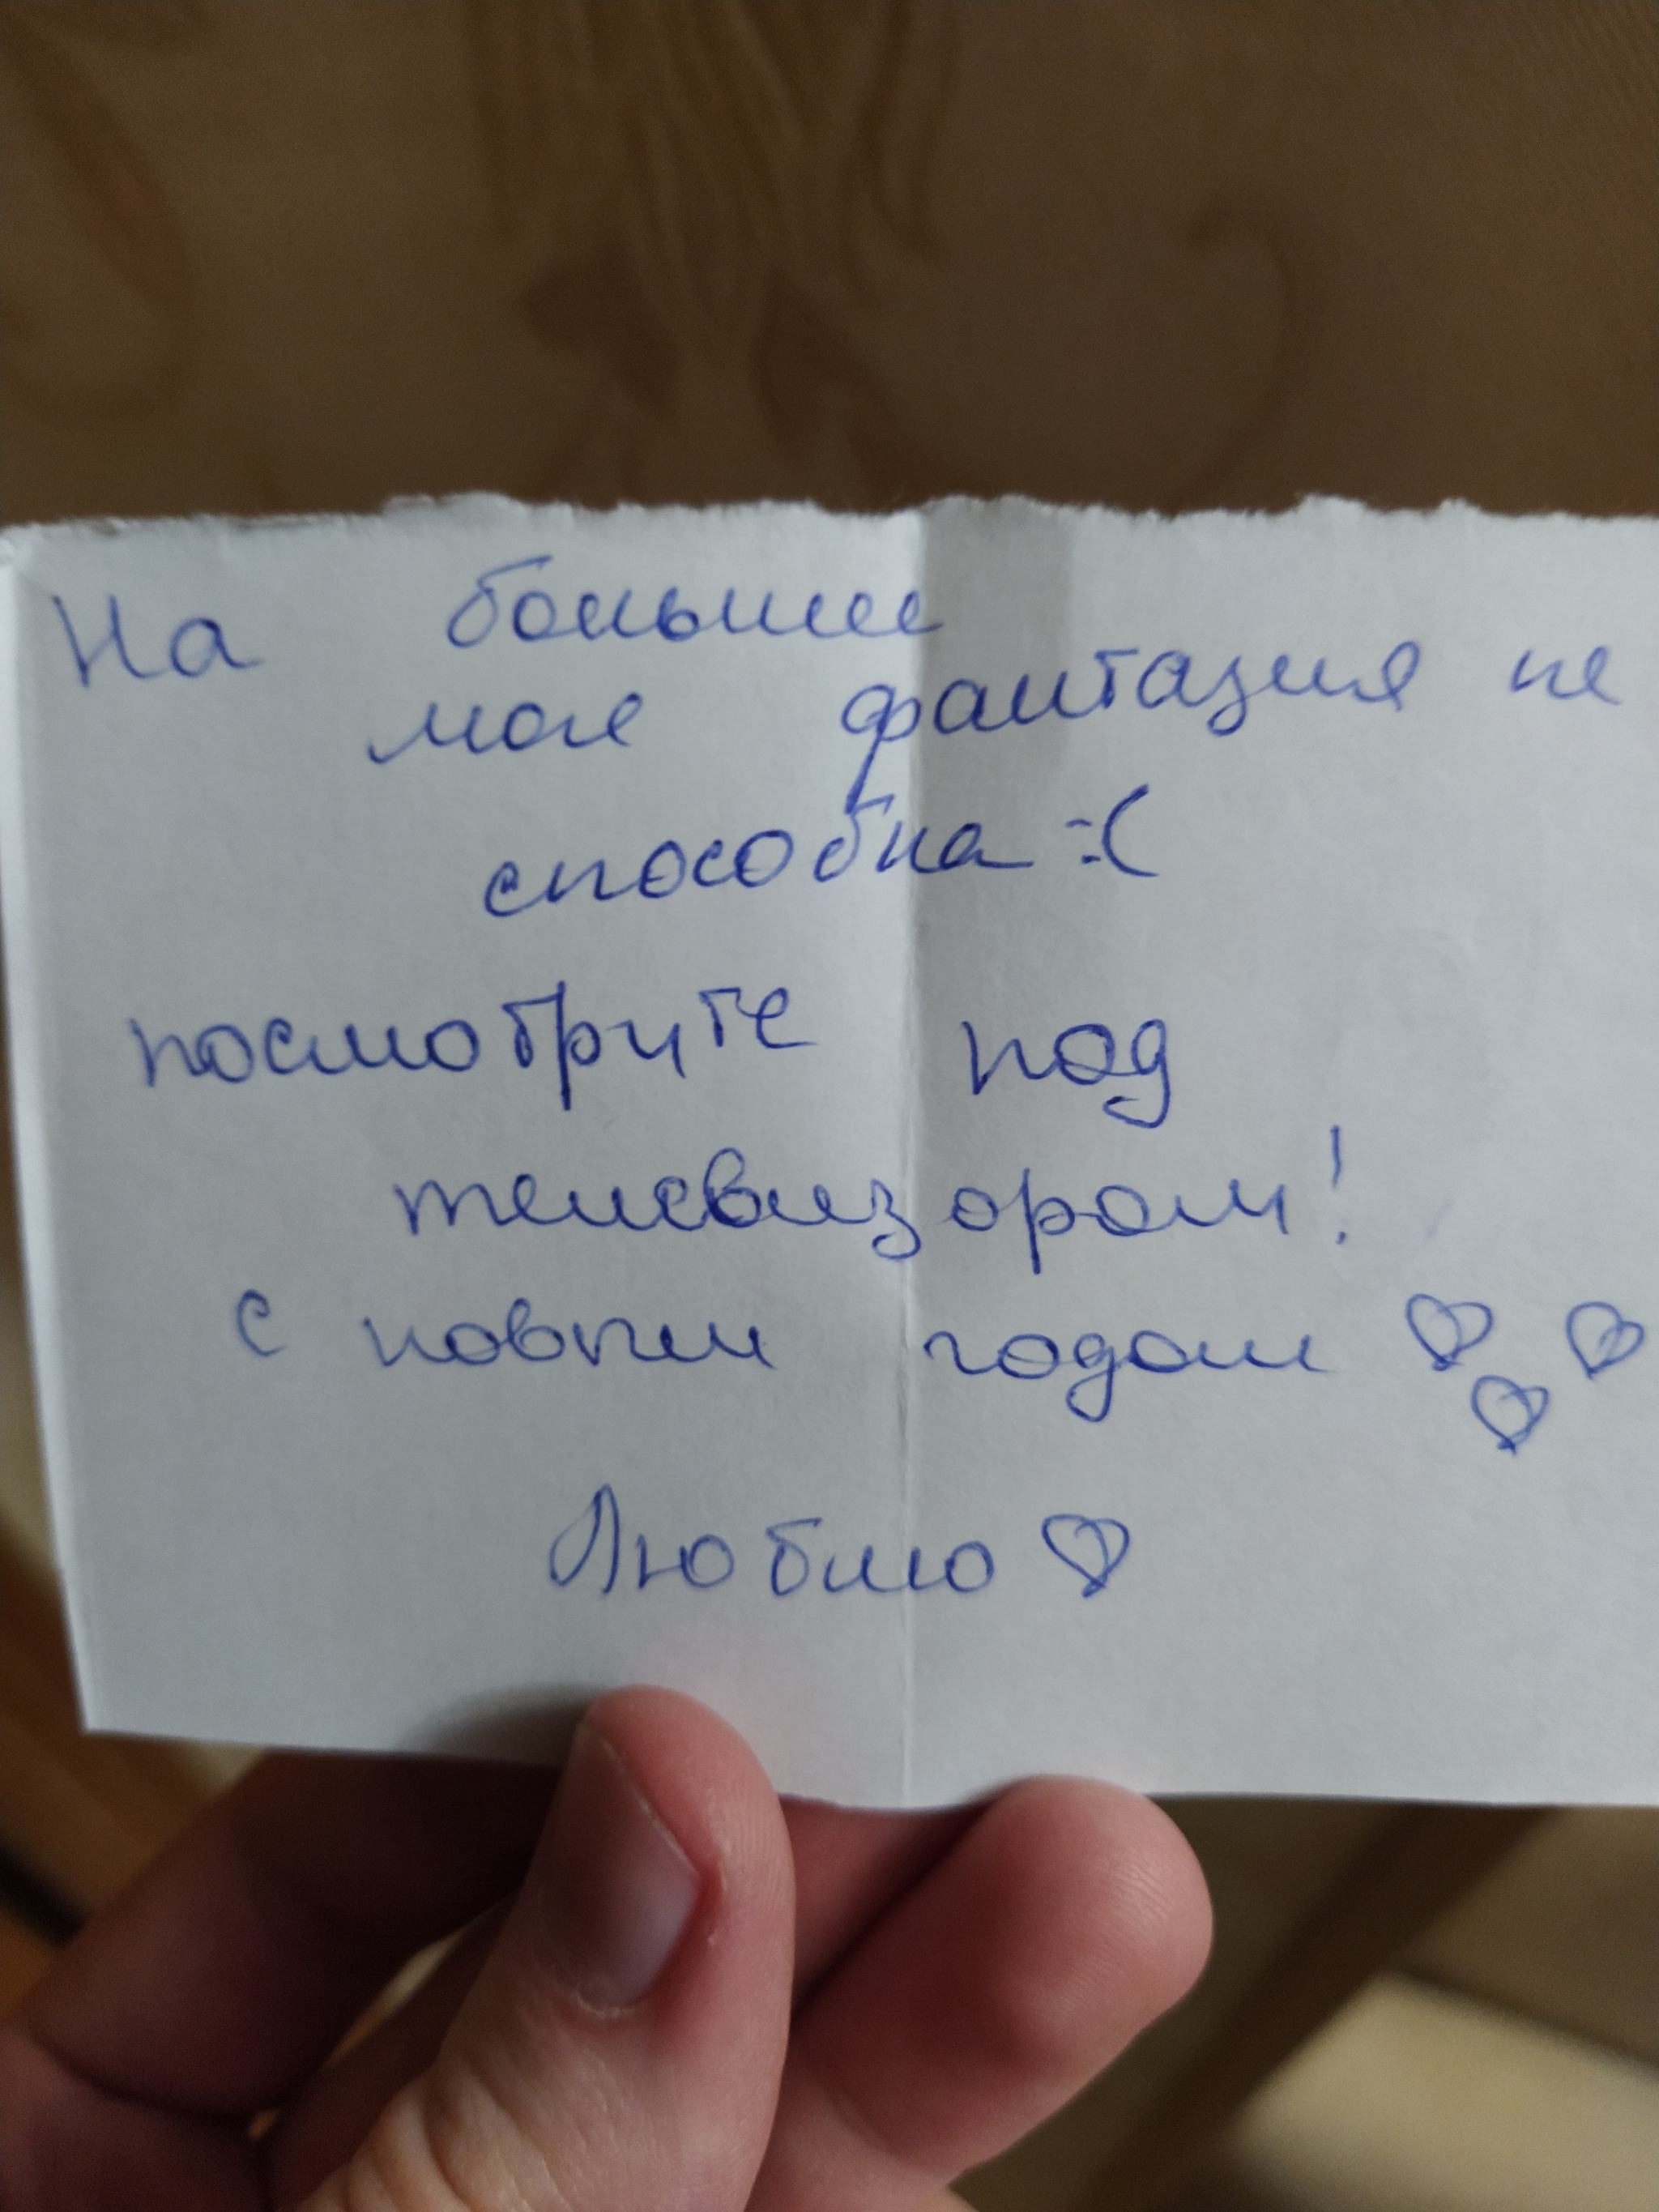 На большее
моя фантазия не
способна :(
посмотрите под
телевизором!
с новым годом ♡ ♡
♡
Люблю ♡